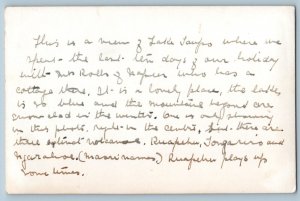 This is a view of Lake Taupo where we
spent the last ten days of our holiday
with Mrs Rolls of Napier who has a
cottage there. It is a lovely place, the lake
is so blue and the mountains beyond are
snow clad in the winter. One is only showing
in this photo, right in the centre, but there are
three extinct volcanoes. Ruapehu, Tongariro and
Ngaruahoe. (Maori names.) Ruapehu plays up
some times.